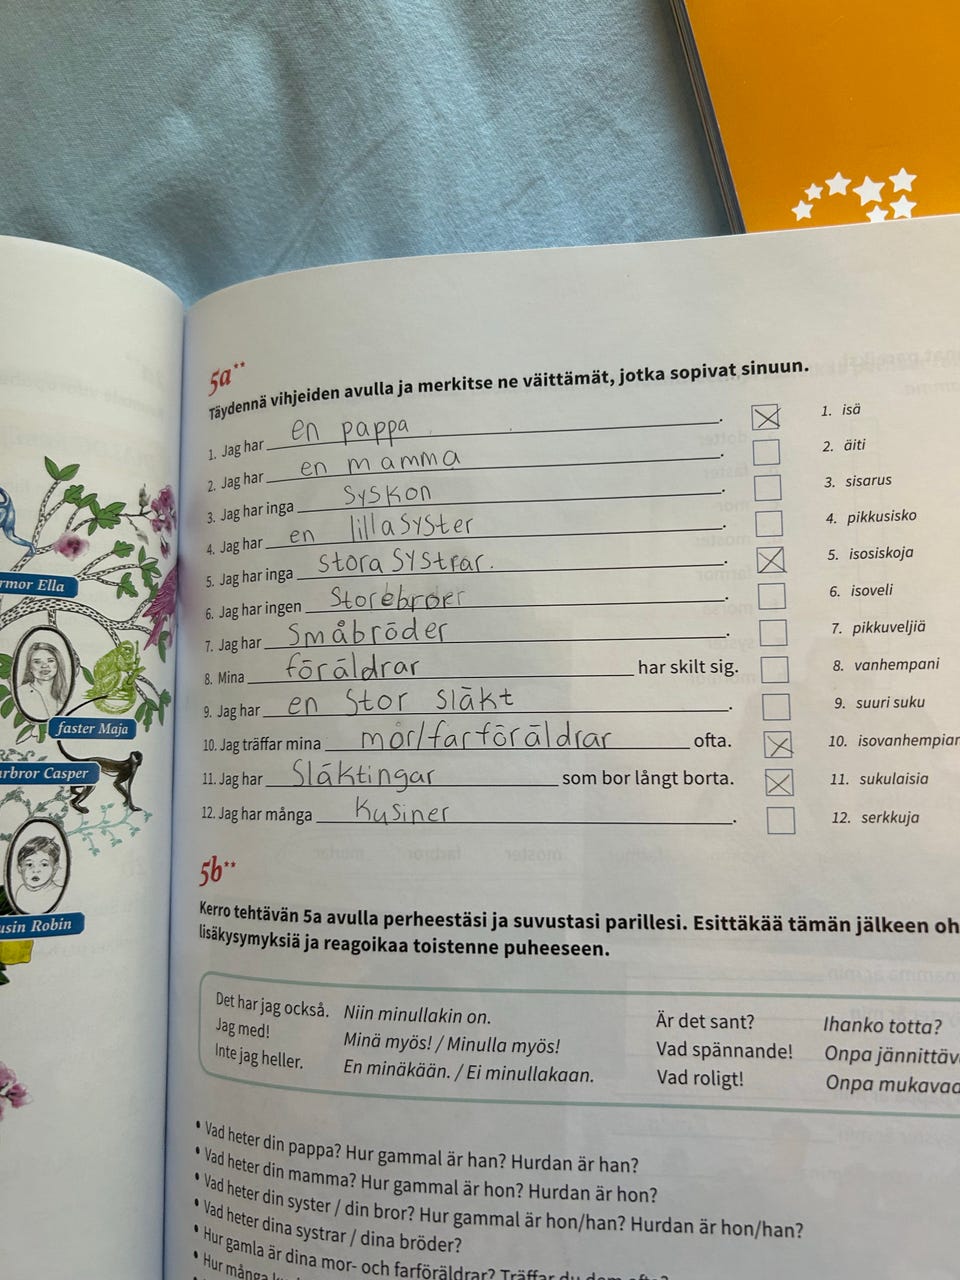 5a**
Täydennä vihjeiden avulla ja merkitse ne väittämät, jotka sopivat sinuun.
1. Jag har en pappa . 1. isä
2. Jag har en mamma . 2. äiti
3. Jag har inga syskon . 3. sisarus
4. Jag har en lillasyster . 4. pikkusisko
5. Jag har inga stora systrar. . 5. isosiskoja
6. Jag har ingen storebroder . 6. isoveli
7. Jag har småbröder . 7. pikkuveljiä
8. Mina föräldrar har skilt sig. 8. vanhempani
9. Jag har en stor släkt . 9. suuri suku
10. Jag träffar mina mor/farföräldrar ofta. 10. isovanhempian
11. Jag har släktingar som bor långt borta. 11. sukulaisia
12. Jag har många kusiner . 12. serkkuja
rmor Ella
faster Maja
arbror Casper
usin Robin
5b**
Kerro tehtävän 5a avulla perheestäsi ja suvustasi parillesi. Esittäkää tämän jälkeen oh
lisäkysymyksiä ja reagoikaa toistenne puheeseen.
Det har jag också. Niin minullakin on. Är det sant? Ihanko totta?
Jag med! Minä myös! / Minulla myös! Vad spännande! Onpa jännittäv
Inte jag heller. En minäkään. / Ei minullakaan. Vad roligt! Onpa mukavaa
• Vad heter din pappa? Hur gammal är han? Hurdan är han?
• Vad heter din mamma? Hur gammal är hon? Hurdan är hon?
• Vad heter din syster / din bror? Hur gammal är hon/han? Hurdan är hon/han?
• Vad heter dina systrar / dina bröder?
• Hur gamla är dina mor- och farföräldrar? Träffar du dem ofta?
• Hur många